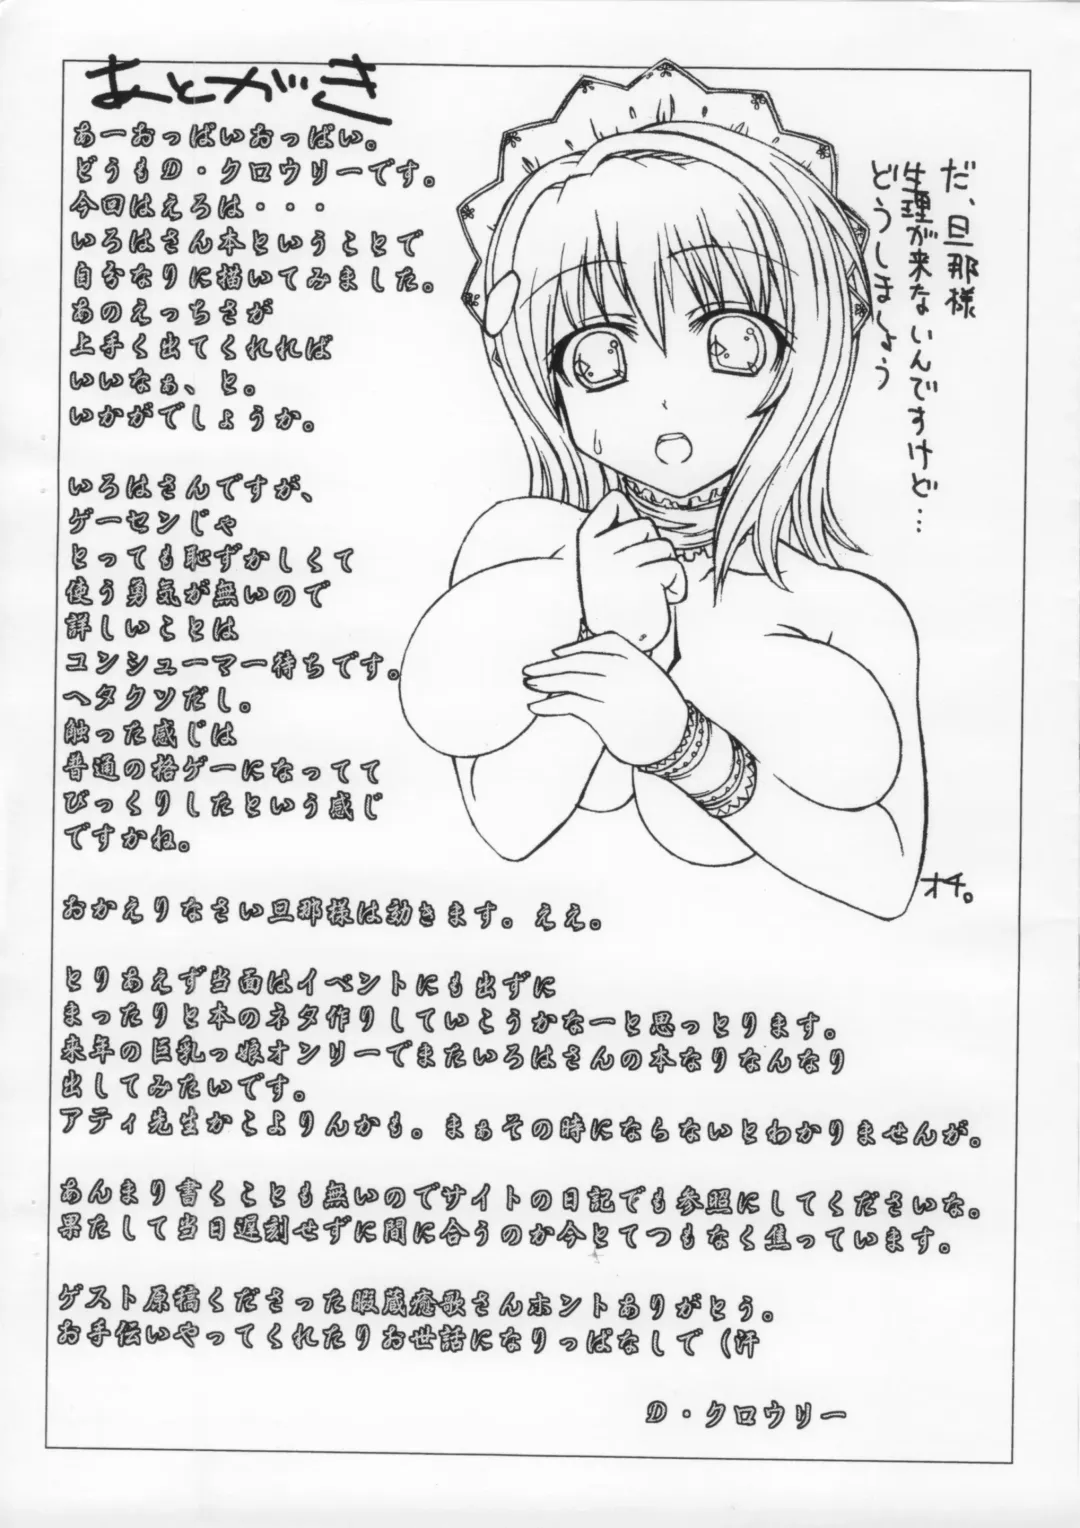 あとがき
あーおっぱいおっぱい。
どうもD・クロウリーです。
今回はえろは・・・
いろはさん本ということで
自分なりに描いてみました。
あのえっちさが
上手く出てくれれば
いいなぁ、と。
いかがでしょうか。
いろはさんですが、
ゲーセンじゃ
とっても恥ずかしくて
使う勇気が無いので
詳しいことは
コンシューマー待ちです。
ヘタクソだし。
触った感じは
普通の格ゲーになってて
びっくりしたという感じ
ですかね。
おかえりなさい旦那様は効きます。ええ。
とりあえず当面はイベントにも出ずに
まったりと本のネタ作りしていこうかなーと思っとります。
来年の巨乳っ娘オンリーでまたいろはさんの本なりなんなり
出してみたいです。
アティ先生かこよりんかも。まぁその時にならないとわかりませんが。
あんまり書くことも無いのでサイトの日記でも参照にしてくださいな。
果たして当日遅刻せずに間に合うのか今とてつもなく焦っています。
ゲスト原稿くださった暇蔵癒歌さんホントありがとう。
お手伝いやってくれたりお世話になりっぱなしで（汗
D・クロウリー
だ、旦那様
生理が来ないんですけど…
どうしましょう
オチ。